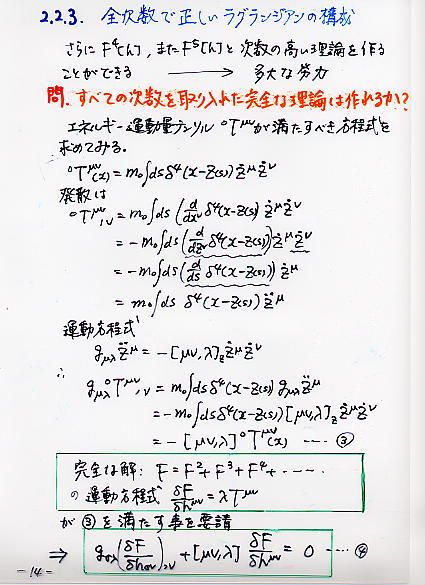 2.2.3. 全次数で正しいラグランジアンの構成
さらに F⁴[h], また F⁵[h] と次数の高い理論を作る
ことができる ⟶ 多大な労力
問. すべての次数を取り入れた完全な理論は作れるか!?
エネルギー運動量テンソル ⁰T^{μν} が満たすべき方程式を
求めてみる。
⁰T^{μν}(x) = m₀∫ds δ⁴(x-Z(s)) ż^μ ż^ν
発散は
⁰T^{μν}_{,ν} = m₀∫ds (d/dx^ν δ⁴(x-Z(s))) ż^μ ż^ν
= -m₀∫ds (d/dz^ν δ⁴(x-Z(s))) ż^μ ż^ν
= -m₀∫ds (d/ds δ⁴(x-Z(s))) ż^μ
= m₀∫ds δ⁴(x-Z(s)) z̈^μ
運動方程式
g_{μλ} z̈^μ = -[μν,λ]_z ż^μ ż^ν
∴
g_{μλ} ⁰T^{μν}_{,ν} = m₀∫ds δ⁴(x-Z(s)) g_{μλ} z̈^μ
= -m₀∫ds δ⁴(x-Z(s)) [μν,λ]_z ż^μ ż^ν
= -[μν,λ] ⁰T^{μν}(x) ---- ③
完全な解: F = F² + F³ + F⁴ + ‐‐‐‐
の運動方程式 δF/δh^{μν} = λT^{μν}
が ③ を満たす事を要請
⇒ g_{σλ}(δF/δh_{σν})_{,ν} + [μν,λ] δF/δh^{μν} = 0 --- ④
-14-